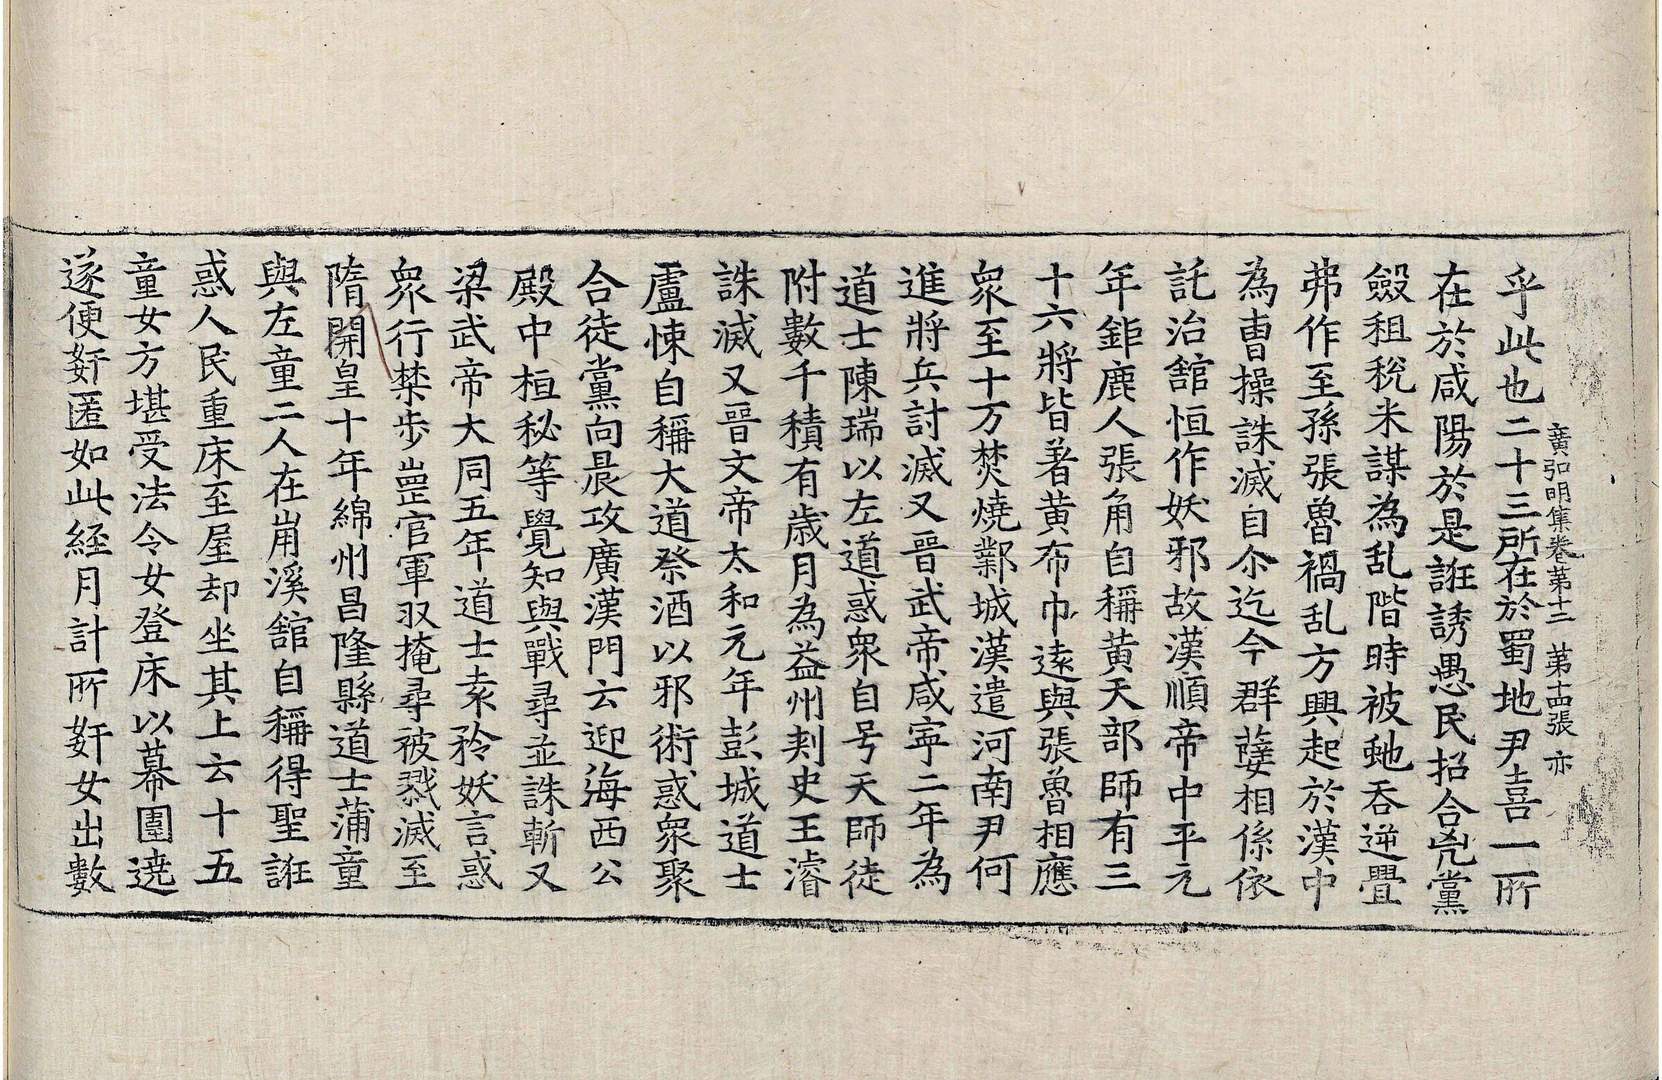 廣弘明集卷第十二　第十四張　亦
乎此也二十三所在於蜀地尹喜一所
在於咸陽於是誑誘愚民招合兇黨
斂租稅米謀為乱階時被虵吞逆舋
弗作至孫張魯禍乱方興起於漢中
為曺操誅滅自尒迄今群孽相係依
託治舘恒作妖邪故漢順帝中平元
年鉅鹿人張角自稱黃天部師有三
十六將皆著黃布巾遠與張魯相應
衆至十万焚燒鄴城漢遣河南尹何
進將兵討滅又晉武帝咸寧二年為
道士陳瑞以左道惑衆自号天師徒
附數千積有歲月為益州刾史王濬
誅滅又晉文帝太和元年彭城道士
盧悚自稱大道祭酒以邪術惑衆聚
合徒黨向晨攻廣漢門云迎海西公
殿中桓秘等覺知與戰尋並誅斬又
梁武帝大同五年道士袁矜妖言惑
衆行禁步罡官軍收掩尋被戮滅至
隋開皇十年綿州昌隆縣道士蒲童
與左童二人在崩溪舘自稱得聖誑
惑人民重床至屋却坐其上云十五
童女方堪受法令女登床以幕圍遶
遂便姧匿如此経月計所姧女出數